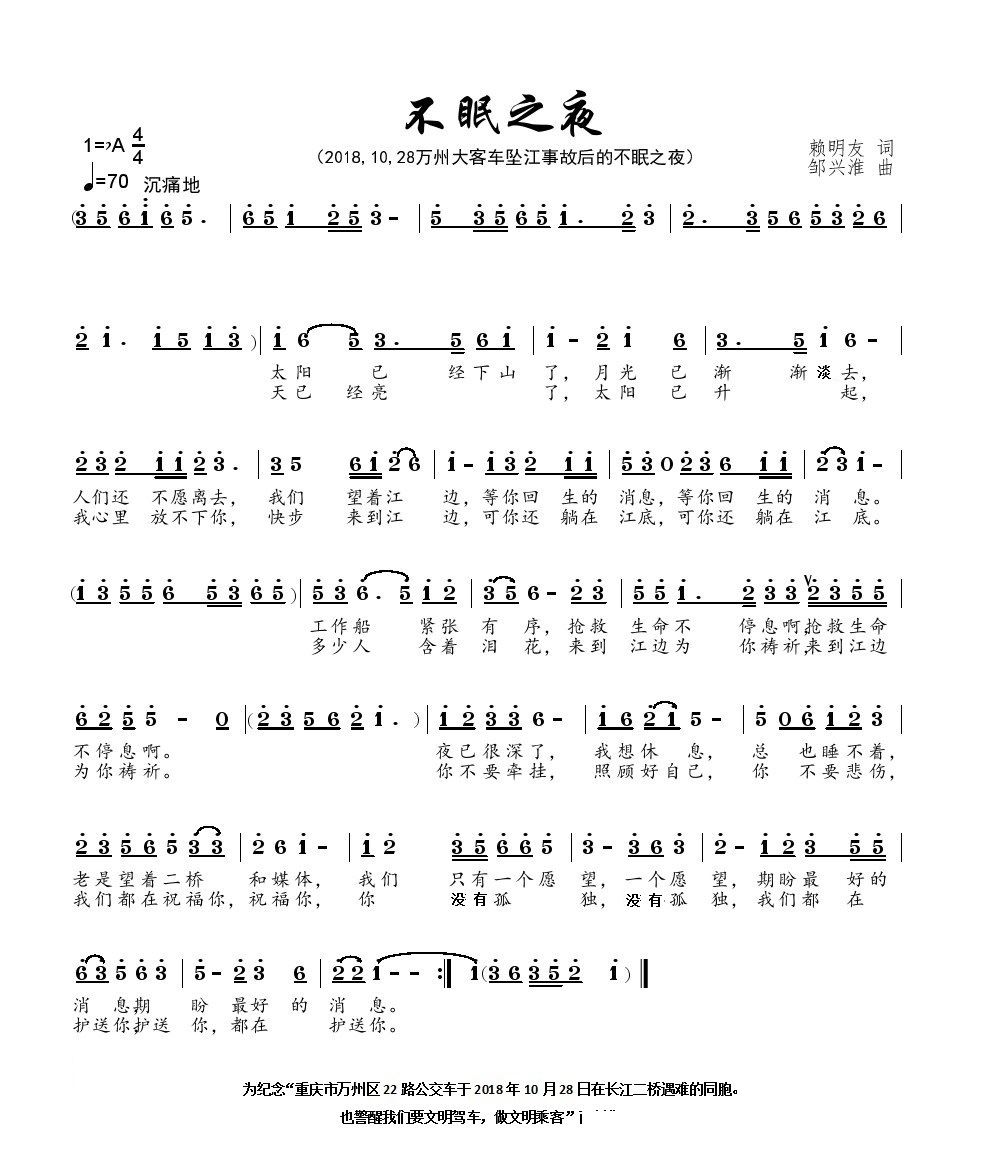 不眠之夜
(2018,10,28万州大客车坠江事故后的不眠之夜)
1=♭A 4/4
♩=70 沉痛地
赖明友 词
邹兴淮 曲
太阳 已 经下山 了，月光 已 渐 渐淡去，
天已 经亮 了，太阳 已 升 起，
人们还 不愿离去，我们 望着江 边，等你回 生的 消息，等你回 生的 消 息。
我心里 放不下你，快步 来到江 边，可你还 躺在 江底，可你还 躺在 江 底。
工作船 紧张 有 序，抢救 生命不 停息啊，抢救生命
多少人 含着 泪 花，来到 江边为 你祷祈，来到江边
不停息啊。 夜已很深了，我想休 息，总 也睡不着，
为你祷祈。 你不要牵挂，照顾好自己，你 不要悲伤，
老是望着二桥 和媒体，我们 只有一个愿 望，一个愿 望，期盼最 好的
我们都在祝福你，祝福你，你 没有孤 独，没有孤 独，我们都 在
消 息，期 盼 最好 的 消 息。
护送你，护送 你，都在 护送你。
为纪念“重庆市万州区22路公交车于2018年10月28日在长江二桥遇难的同胞。
也警醒我们要文明驾车，做文明乘客”